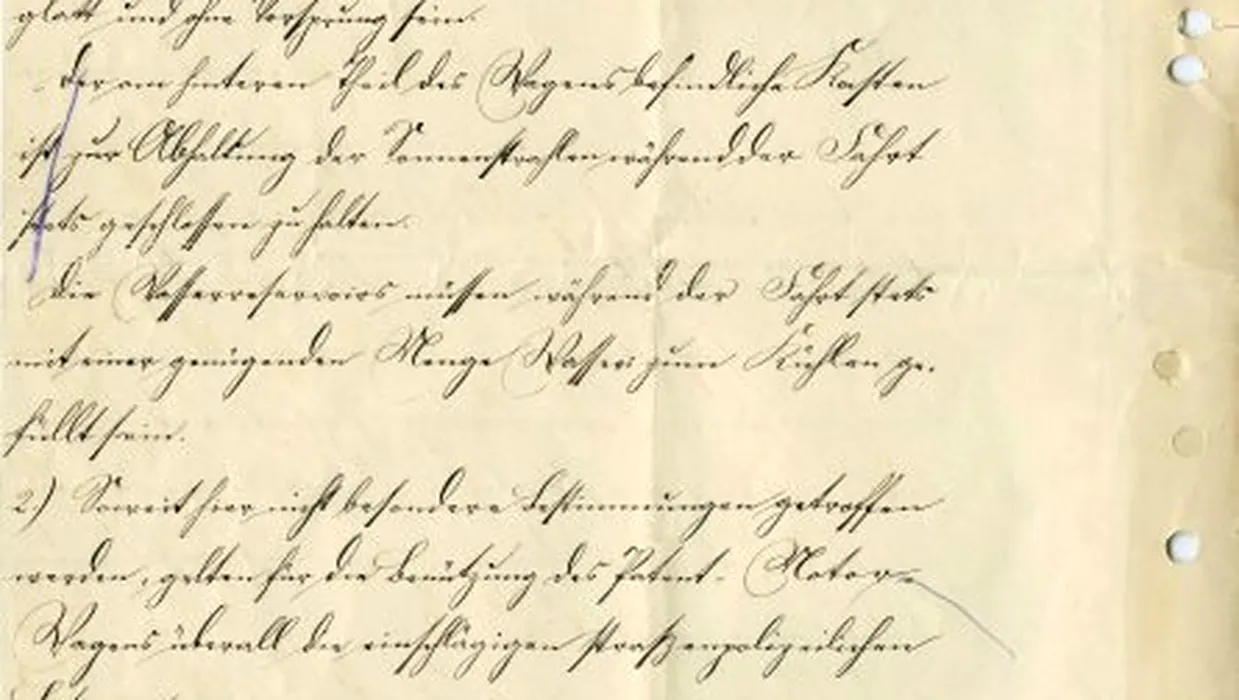 glatt und ohne Vorsprung sein.
Der am hinteren Theil des Wagens befindliche Kasten
ist zur Abhaltung der Sonnenstrahlen während der Fahrt
stets geschlossen zu halten.
Die Wasserreservoirs müssen während der Fahrt stets
mit einer genügenden Menge Wassers zum Kühlen ge-
füllt sein.
2.) Soweit hier nicht besondere Bestimmungen getroffen
werden, gelten für die Benützung des Patent-Motor-
Wagens überall die einschlägigen straßenpolizeilichen